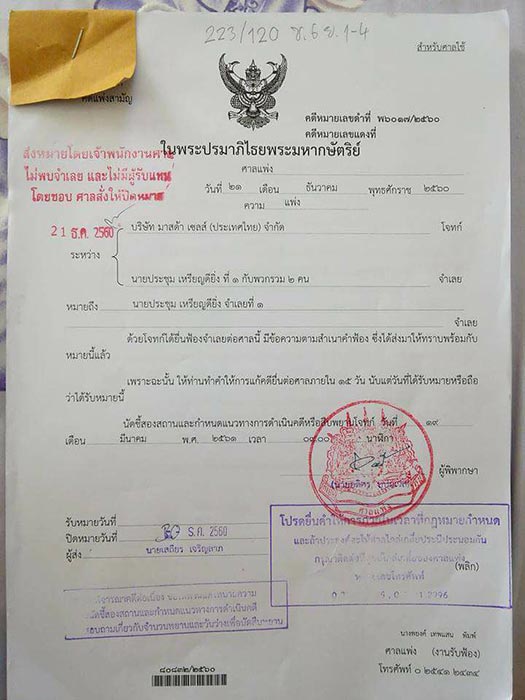 223/120 ซ.6 ย.1-4
สำหรับศาลใช้
คดีแพ่งสามัญ
คดีหมายเลขดำที่ พ๖๐๑๗/๒๕๖๐
คดีหมายเลขแดงที่
ในพระปรมาภิไธยพระมหากษัตริย์
ส่งหมายโดยเจ้าพนักงานศาล
ไม่พบจำเลย และไม่มีผู้รับแทน
โดยชอบ ศาลสั่งให้ปิดหมาย
ศาลแพ่ง
วันที่ ๒๑ เดือน ธันวาคม พุทธศักราช ๒๕๖๐
ความ แพ่ง
21 ธ.ค. 2560
บริษัท มาสด้า เซลส์ (ประเทศไทย) จำกัด โจทก์
ระหว่าง
นายประชุม เหรียญดียิ่ง ที่ ๑ กับพวกรวม ๒ คน จำเลย
หมายถึง นายประชุม เหรียญดียิ่ง จำเลยที่ ๑
จำเลย
ด้วยโจทก์ได้ยื่นฟ้องจำเลยต่อศาลนี้ มีข้อความตามสำเนาคำฟ้อง ซึ่งได้ส่งมาให้ทราบพร้อมกับ
หมายนี้แล้ว
เพราะฉะนั้น ให้ท่านทำคำให้การแก้คดียื่นต่อศาลภายใน ๑๕ วัน นับแต่วันที่ได้รับหมายหรือถือ
ว่าได้รับหมายนี้
นัดชี้สองสถานและกำหนดแนวทางการดำเนินคดีหรือสืบพยานโจทก์ วันที่ ๑๙
เดือน มีนาคม พ.ศ. ๒๕๖๑ เวลา ๐๙.๐๐ นาฬิกา
ผู้พิพากษา
ศาลแพ่ง
รับหมายวันที่
ปิดหมายวันที่ 30 ธ.ค. 2560
ผู้ส่ง นายเสถียร เจริญลาภ
โปรดยื่นคำให้การภายในเวลาที่กฎหมายกำหนด
(พลิก)
นัดชี้สองสถานและกำหนดแนวทางการดำเนินคดี
สอบถามเกี่ยวกับจำนวนพยานและวันว่างเพื่อนัดสืบพยาน
พิมพ์
ศาลแพ่ง (งานรับฟ้อง)
โทรศัพท์ ๐ ๒๕๔๑ ๒๔๓๔
๘๐๘๓๒/๒๕๖๐